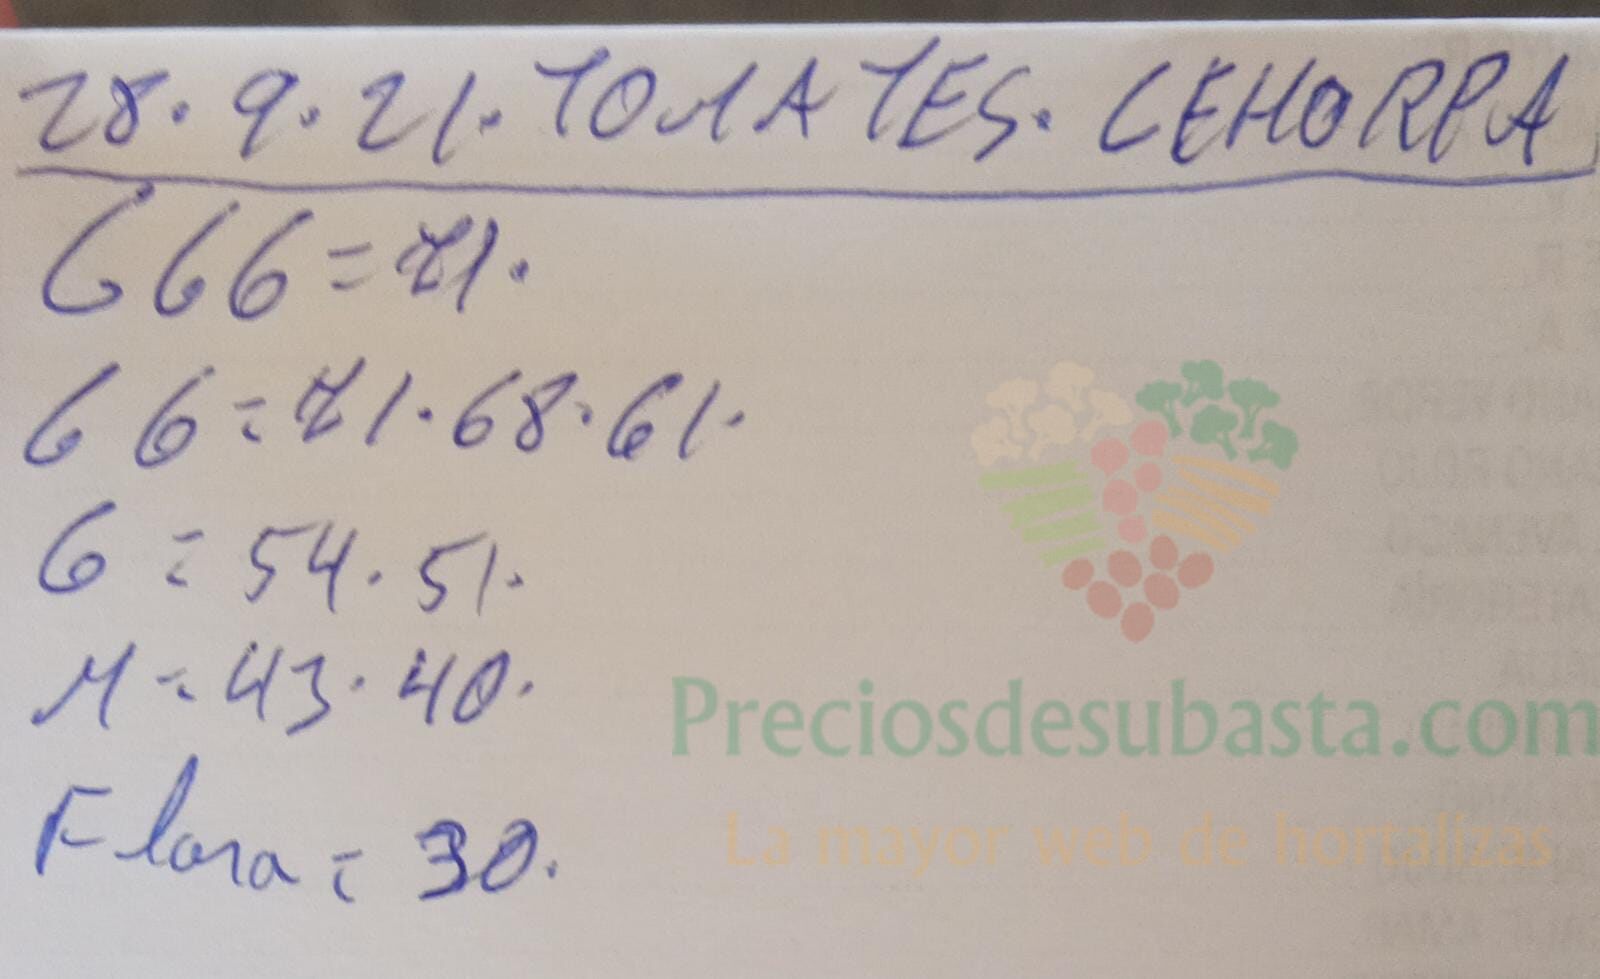 28.9.21. TOMATES. CEHORPA
GGG = 71.
GG = 71.68.61.
G = 54.51.
M = 43.40.
Flora = 30.
Preciosdesubasta.com
La mayor web de hortalizas